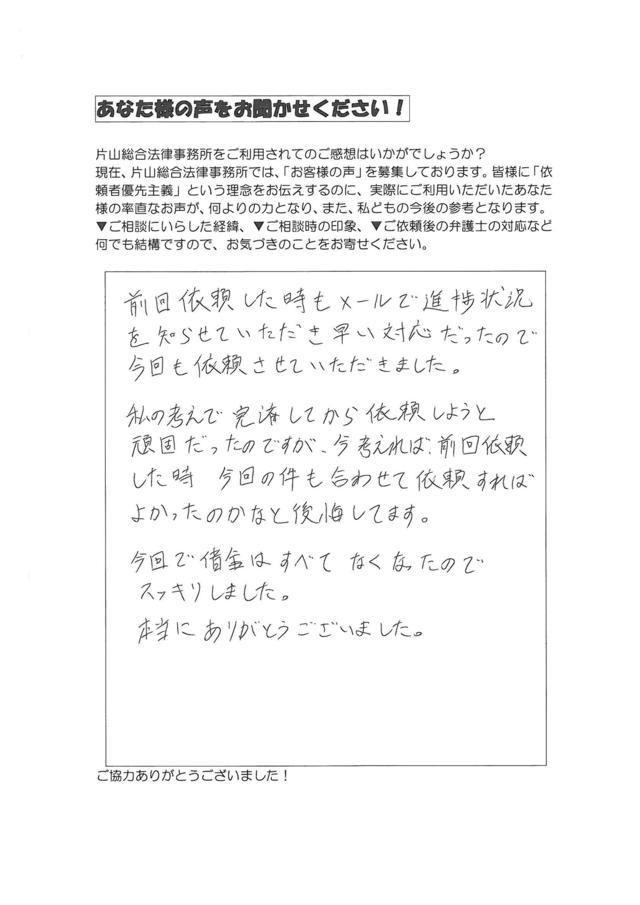 あなた様の声をお聞かせください！
片山総合法律事務所をご利用されてのご感想はいかがでしょうか？
現在、片山総合法律事務所では、「お客様の声」を募集しております。皆様に「依
頼者優先主義」という理念をお伝えするのに、実際にご利用いただいたあなた
様の率直なお声が、何よりの力となり、また、私どもの今後の参考となります。
▼ご相談にいらした経緯、▼ご相談時の印象、▼ご依頼後の弁護士の対応など
何でも結構ですので、お気づきのことをお寄せください。
前回依頼した時もメールで進捗状況
を知らせていただき早い対応だったので
今回も依頼させていただきました。
私の考えで完済してから依頼しようと
頑固だったのですが、今考えれば、前回依頼
した時 今回の件も合わせて依頼すれば
よかったのかなと後悔してます。
今回で借金はすべて なくなったので
スッキリしました。
本当にありがとうございました。
ご協力ありがとうございました！